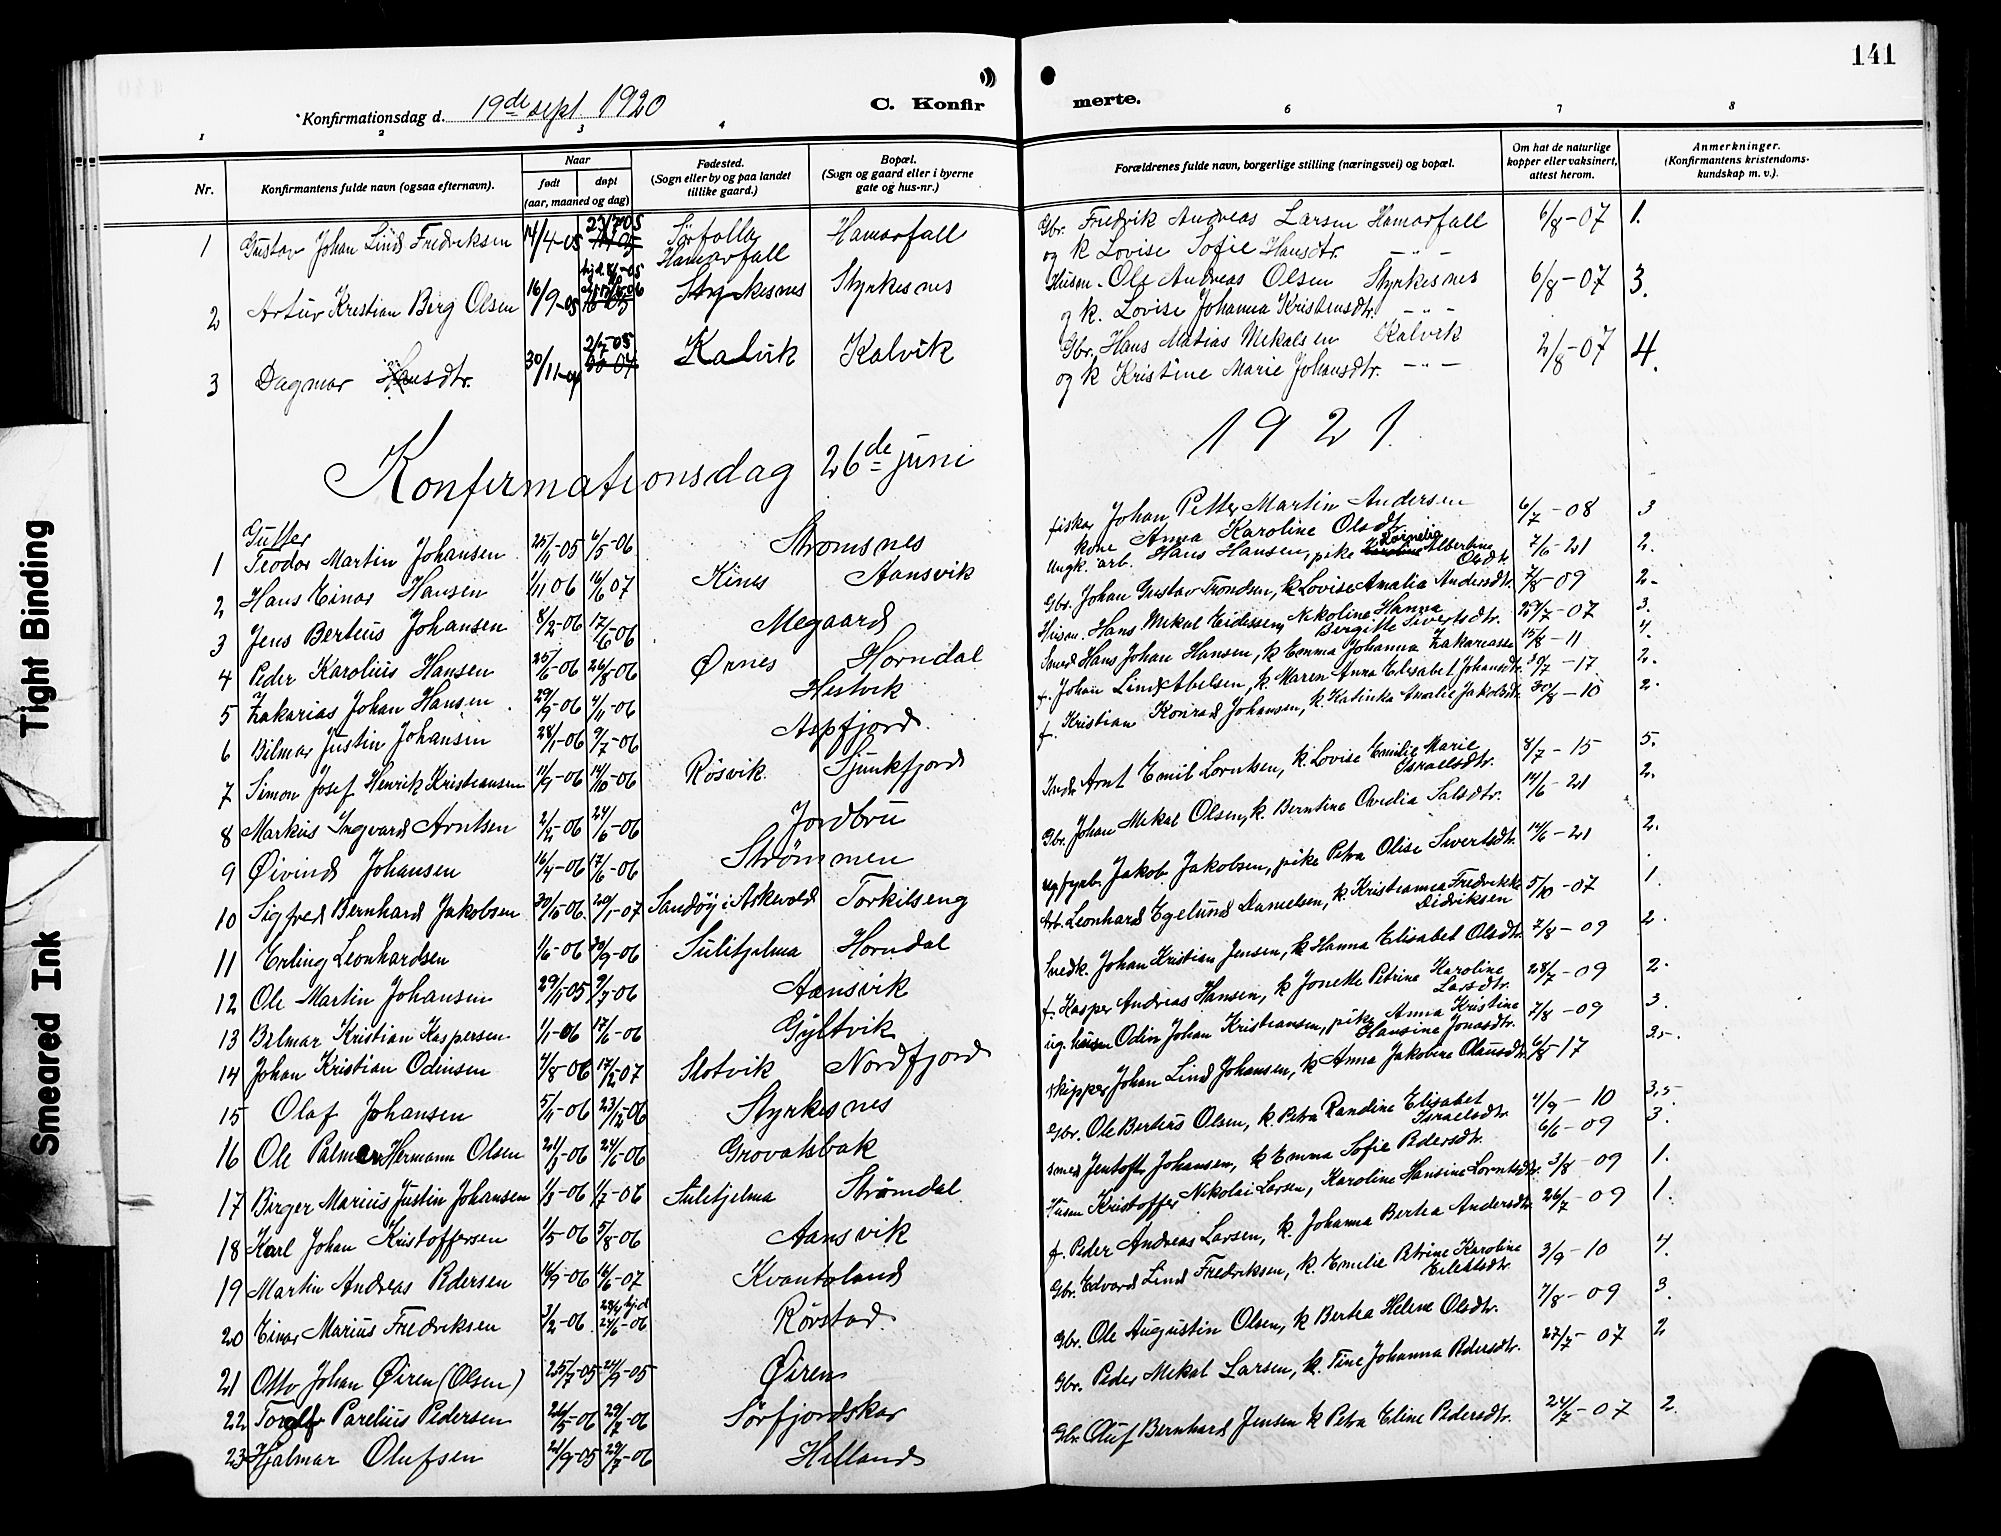 141
Konfirmationsdag d. 19de sept. 1920
C. Konfirmerte.
1 2 3 4 6 7 8
Nr. Konfirmantens fulde navn (ogsaa efternavn). Naar født døpt (aar, maaned og dag) Fødested. (Sogn eller by og paa landet tillike gaard.) Bopæl. (Sogn og gaard eller i byerne gate og hus-nr.) Forældrenes fulde navn, borgerlige stilling (næringsvei) og bopæl. Om hat de naturlige kopper eller vaksinert, attest herom. Anmerkninger. (Konfirmantens kristendoms-kundskap m. v.).
1 Gustav Johan Lind Fredriksen 14/4-05 Sørfolla Hamarfall Hamarfall Gbr. Fredrik Andreas Larsen Hamarfall 6/8-07 1.
og k Lovise Sofie Hansdtr. - " -
2 Artur Kristian Berg Olsen 16/9-05 Styrkesnes Styrkesnes Husm. Ole Andreas Olsen Styrkesnes 6/8-07 3.
og k. Lovise Johanna Kristensdtr. - " -
3 Dagmar Hansdtr. 30/11-04 2/7-05 Kalvik Kalvik Gbr. Hans Matias Mikalsen Kalvik 2/8-07 4.
og k Kristine Marie Johansdtr. - " -
Konfirmationsdag 26de juni 1921.
Gutter
1 Teodor Martin Johansen 25/11-05 6/5-06 Strømsnes fisker Johan Petter Martin Andersen 6/7-08 3
kone Anna Karoline Olsdtr.
2 Hans Einar Hansen 1/11 06 16/6 07 Kines Aansvik Ungk. arb. Hans Hansen, pike Kornelia Albertine Olsdtr. 7/6-21 2.
3 Jens Berteus Johansen 8/2-06 17/6-06 Megaard Gbr. Johan Gustav Trondsen, k Lovise Amalia Andersdtr. 7/8-09 2-
4 Peder Karolius Hansen 25/6-06 26/8-06 Ørnes Horndal Husm. Hans Mikal Eidessen, Nikoline Hanna Birgitte Sivertsdtr. 29/7-07 3.
5 Zakarias Johan Hansen 29/9-06 4/11-06 Hestvik Smed Hans Johan Hansen, k Emma Johanna Zakariasd. 15/8-11 4.
6 Bilmar Justin Johansen 28/1-06 9/7-06 Aspfjord. f. Johan Lind Abelsen, k. Maren Anna Elisabet Johansdtr. 30/7-17 2.
7 Simon Josef Henrik Kristiansen 11/9-06 14/10-06 Røsvik. Sjunkfjord f. Kristian Konrad Johansen, k. Katinka Amalie Jakobsdtr. 30/8-10 2.
8 Markus Ingvard Arntsen 2/2-06 24/6-06 Jordbru Indr. Arnt Emil Lorntsen, k. Lovise Emilie Marie Israelsdtr. 8/7-15 5.
9 Øivind Johansen 16/4-06 17/6-06 Strømmen Gbr. Johan Mikal Olsen, k. Berntine Ovidia Salsdtr. 14/6-21 2.
10 Sigfred Bernhard Jakobsen 30/10-06 20/1-07 Sandøy i Askevold Torkilseng Jakob Jakobsen, pike Petra Olise Sivertsdtr. 14/6-21 2.
11 Erling Leonhardsen 1/6-06 30/9-06 Sulitjelma Horndal Arb. Leonhard Egelund Danielsen, k. Kristianna Fredrikke Didriksen 5/10-07 1.
12 Ole Martin Johansen 29/11-05 9/7-06 Aansvik Snedk. Johan Kristian Jensen, k Hanna Elisabet Olsdtr. 7/8-09 2.
13 Bilmar Kristian Kaspersen 1/1-06 17/6-06 Gyltvik f. Kasper Andreas Hansen, k Jonette Petrine Karoline Larsdtr. 28/7-09 2.
14 Johan Kristian Odinsen 7/8-06 17/2-07 Slotvik Nordfjord ug. husm Odin Johan Kristiansen, pike Anna Kristine Hansine Jonasdtr. 7/8-09 3.
15 Olaf Johansen 5/11-06 23/12-06 Styrkesnes skipper Johan Lind Johansen, k Anna Jakobine Olausdtr. 6/8-17 2.5-.
16 Ole Palmer Hermann Olsen 21/3-06 24/6-06 Grovatsbak Gbr. Ole Berteus Olsen, k. Petra Randine Elisabet Israelsdtr. 4/9-10 3,5-
17 Birger Marius Justin Johansen 1/3-06 1/7-06 Sulitjelma Strømdal smed Jentoft Johansen, k Emma Sofie Pedersdtr. 6/6-09 3.
18 Karl Johan Kristoffersen 1/5-06 5/8-06 Aansvik Husm Kristoffer Nikolai Larsen, Karoline Hansine Lorntsdtr. 3/8-09 1.
19 Martin Andreas Pedersen 16/9-06 16/6-07 Kvantoland f. Peder Andreas Larsen, k. Johanna Bertea Andersdtr. 26/7-09 1.
20 Einar Marius Fredriksen 3/2-06 24/6-06 Rørstad. Gbr. Edvard Lind Fredriksen, k. Emilie Petrine Karoline Eilertsdtr. 3/9-10 4.
21 Otto Johan Øiren (Olsen) 25/7-05 24/9-05 Øiren Gbr. Ole Augustin Olsen, k Bertea Helene Olsdtr. 7/8-09 3.
22 Torolf Parelius Pedersen 26/5-06 29/7-06 Sørfjordskar Gbr. Peder Mikal Larsen, k. Tine Johanna Pedersdtr. 27/7-07 2
23 Hjalmar Olufsen 21/9-05 29/7-06 Helland Gbr. Oluf Bernhard Jensen k Petra Eline Pedersdtr. 24/7-07 2.
Tight Binding
Smeared Ink